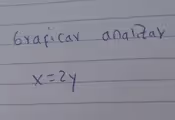 Graficar analizar
x=2y